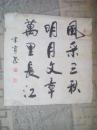 風采三秋
明月文章
萬里長江